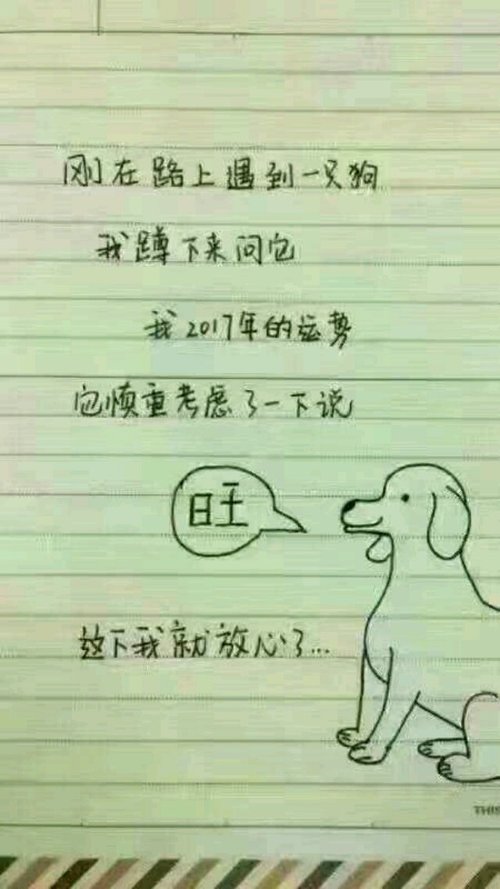 刚在路上遇到一只狗
我蹲下来问它
我2017年的运势
它慎重考虑了一下说
旺
这下我就放心了...
THIS